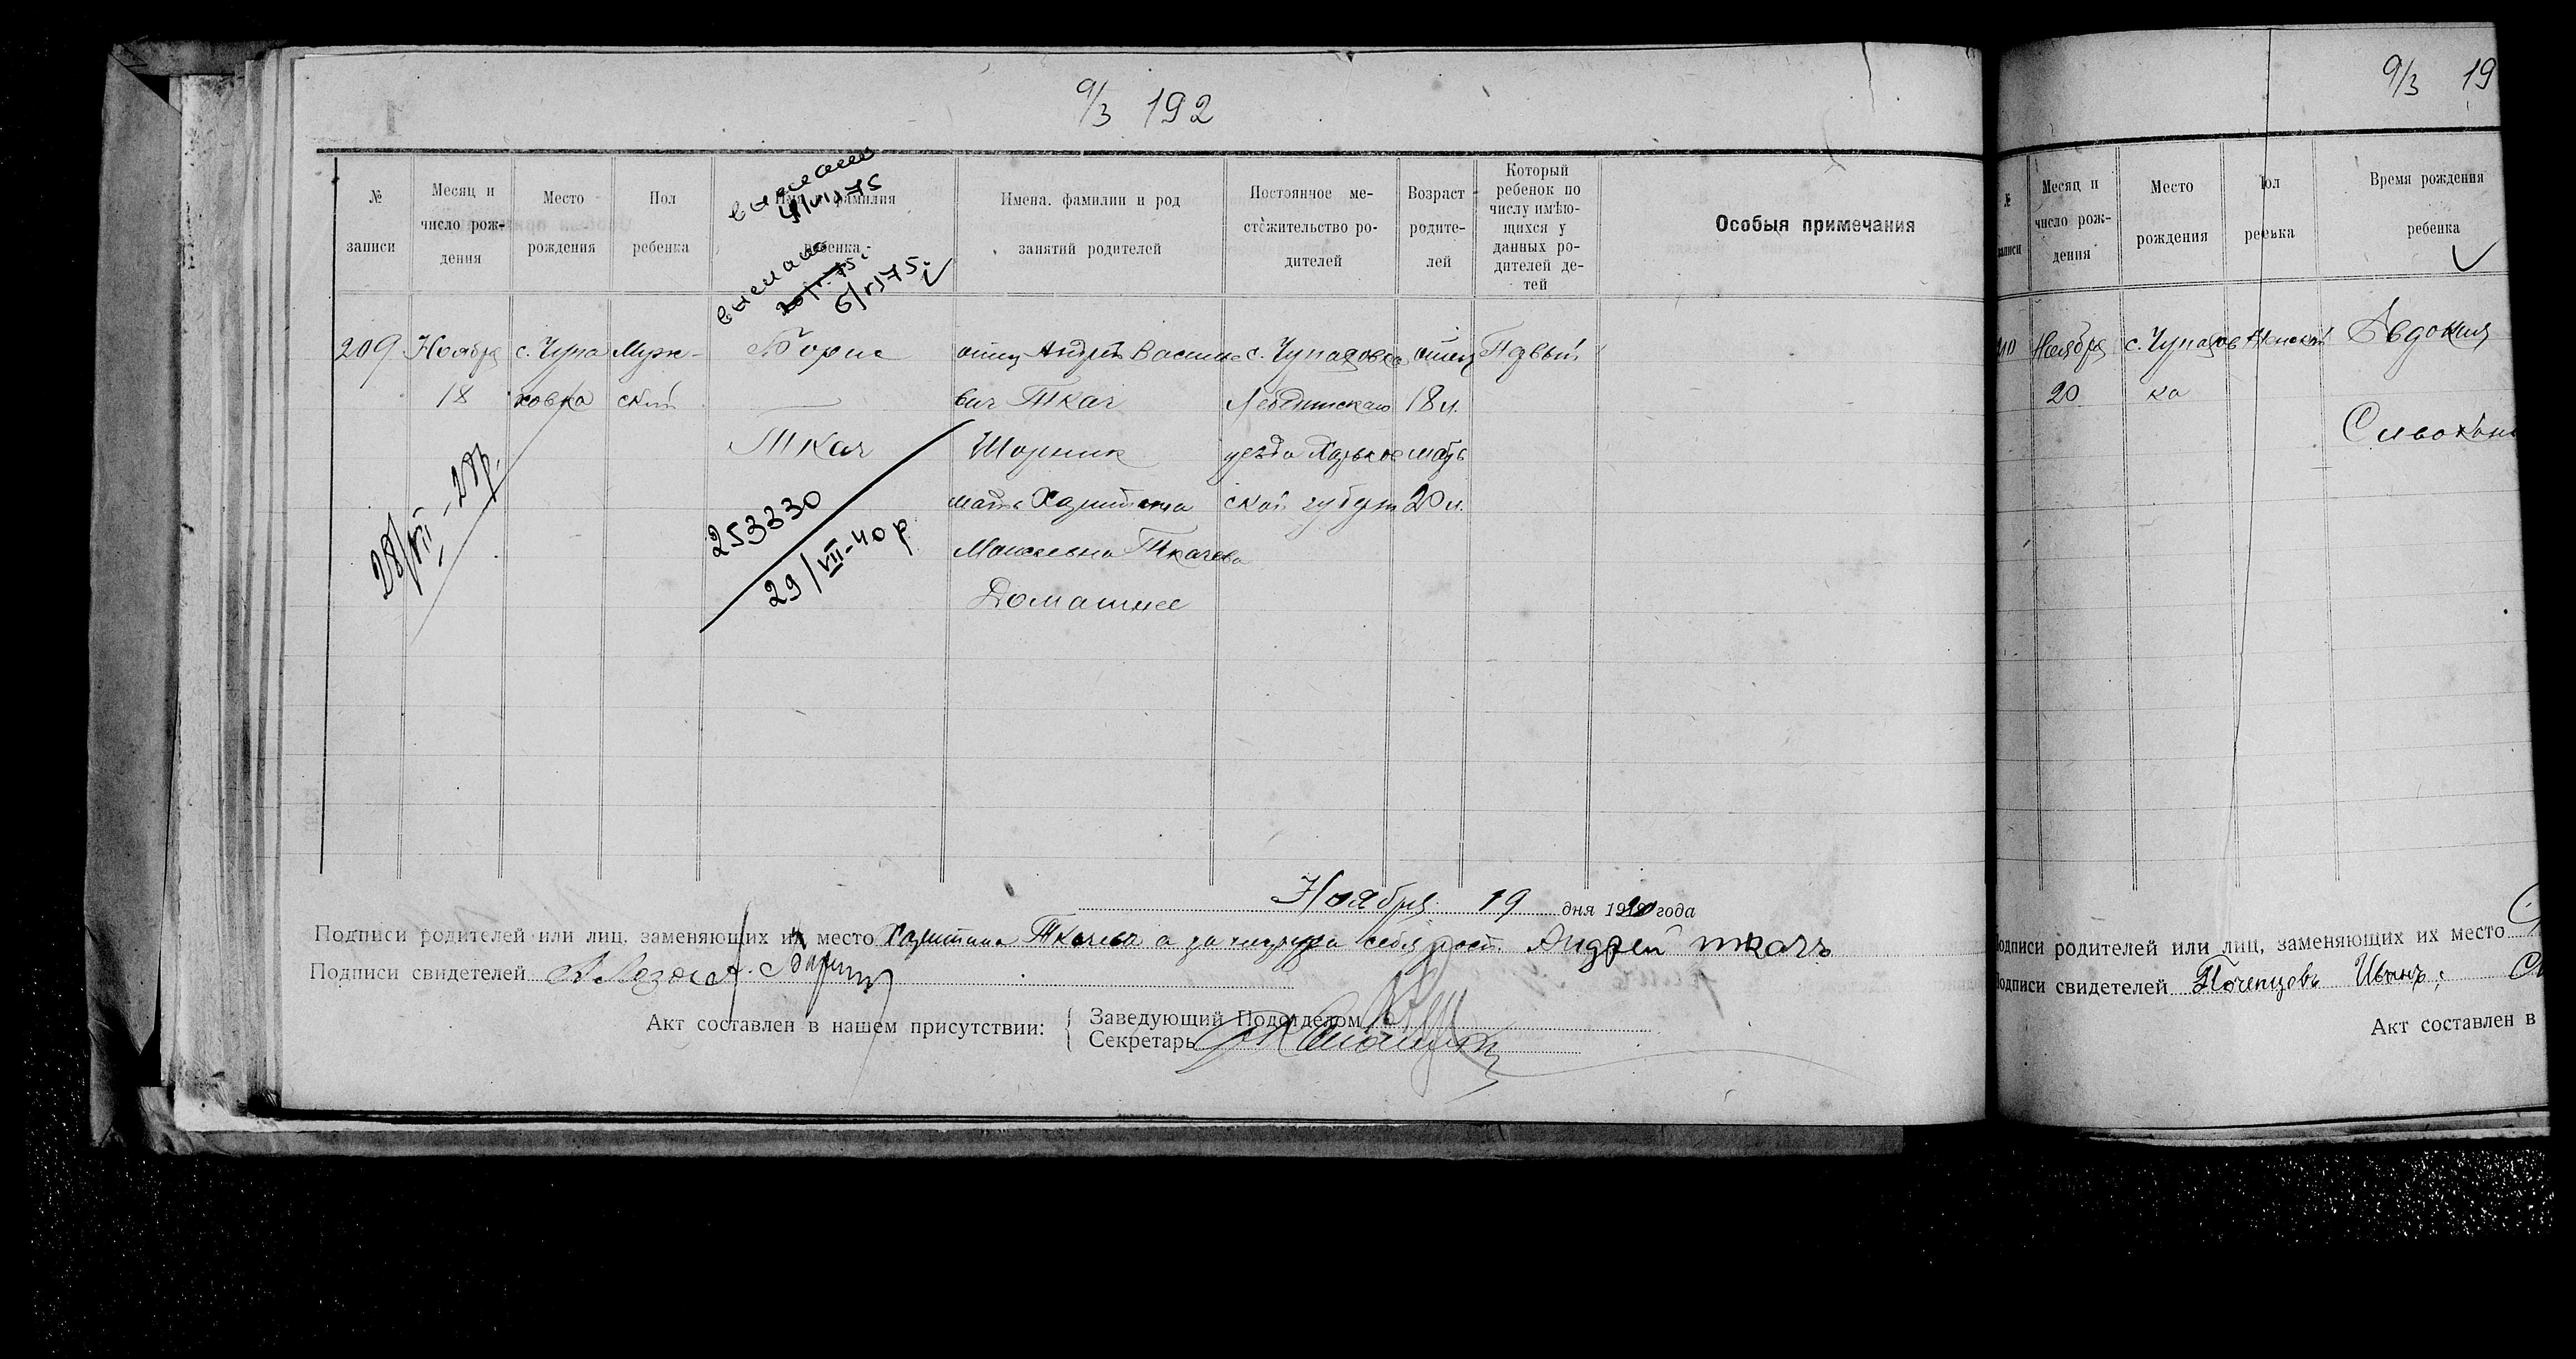 9/3 192
№ записи
Месяц и число рож-дения
Место рождения
Пол ребенка
Имя и фамилия ребенка
Имена, фамилии и род занятий родителей
Постоянное ме-стожительство ро-дителей
Возраст родите-лей
Который ребенок по числу имѣю-щихся у данных ро-дителей де-тей
Особыя примечания
5/V)75.
209 Ноября с. Чупа Муж- Борис отец Андрей Василье с. Чупаховка отец Первый
18 ховка ской вич Ткач Лебединскаго 18 л.
Ткач Шорник уезда Харьков мать
мать Харитина ской губерн 20 л.
Моисеевна Ткачева
Домашнее
28/VII-
253330
29/VIII-40 р.
Ноября 19 дня 1920 года
Подписи родителей или лиц, заменяющих их место Харитина Ткачева а за неграмотн себя расп. Андрей ткачъ
Подписи свидетелей
Акт составлен в нашем присутствии:
Заведующий Подотделом
Секретарь
9/3 19
№ записи
Месяц и число рож-дения
Место рождения
Пол ребенка
Время рождения ребенка
210 Ноября с. Чупахов Женский Авдокия
20 ка
Подписи родителей или лиц, заменяющих их место
Подписи свидетелей Почепцовъ Иванъ;
Акт составлен в